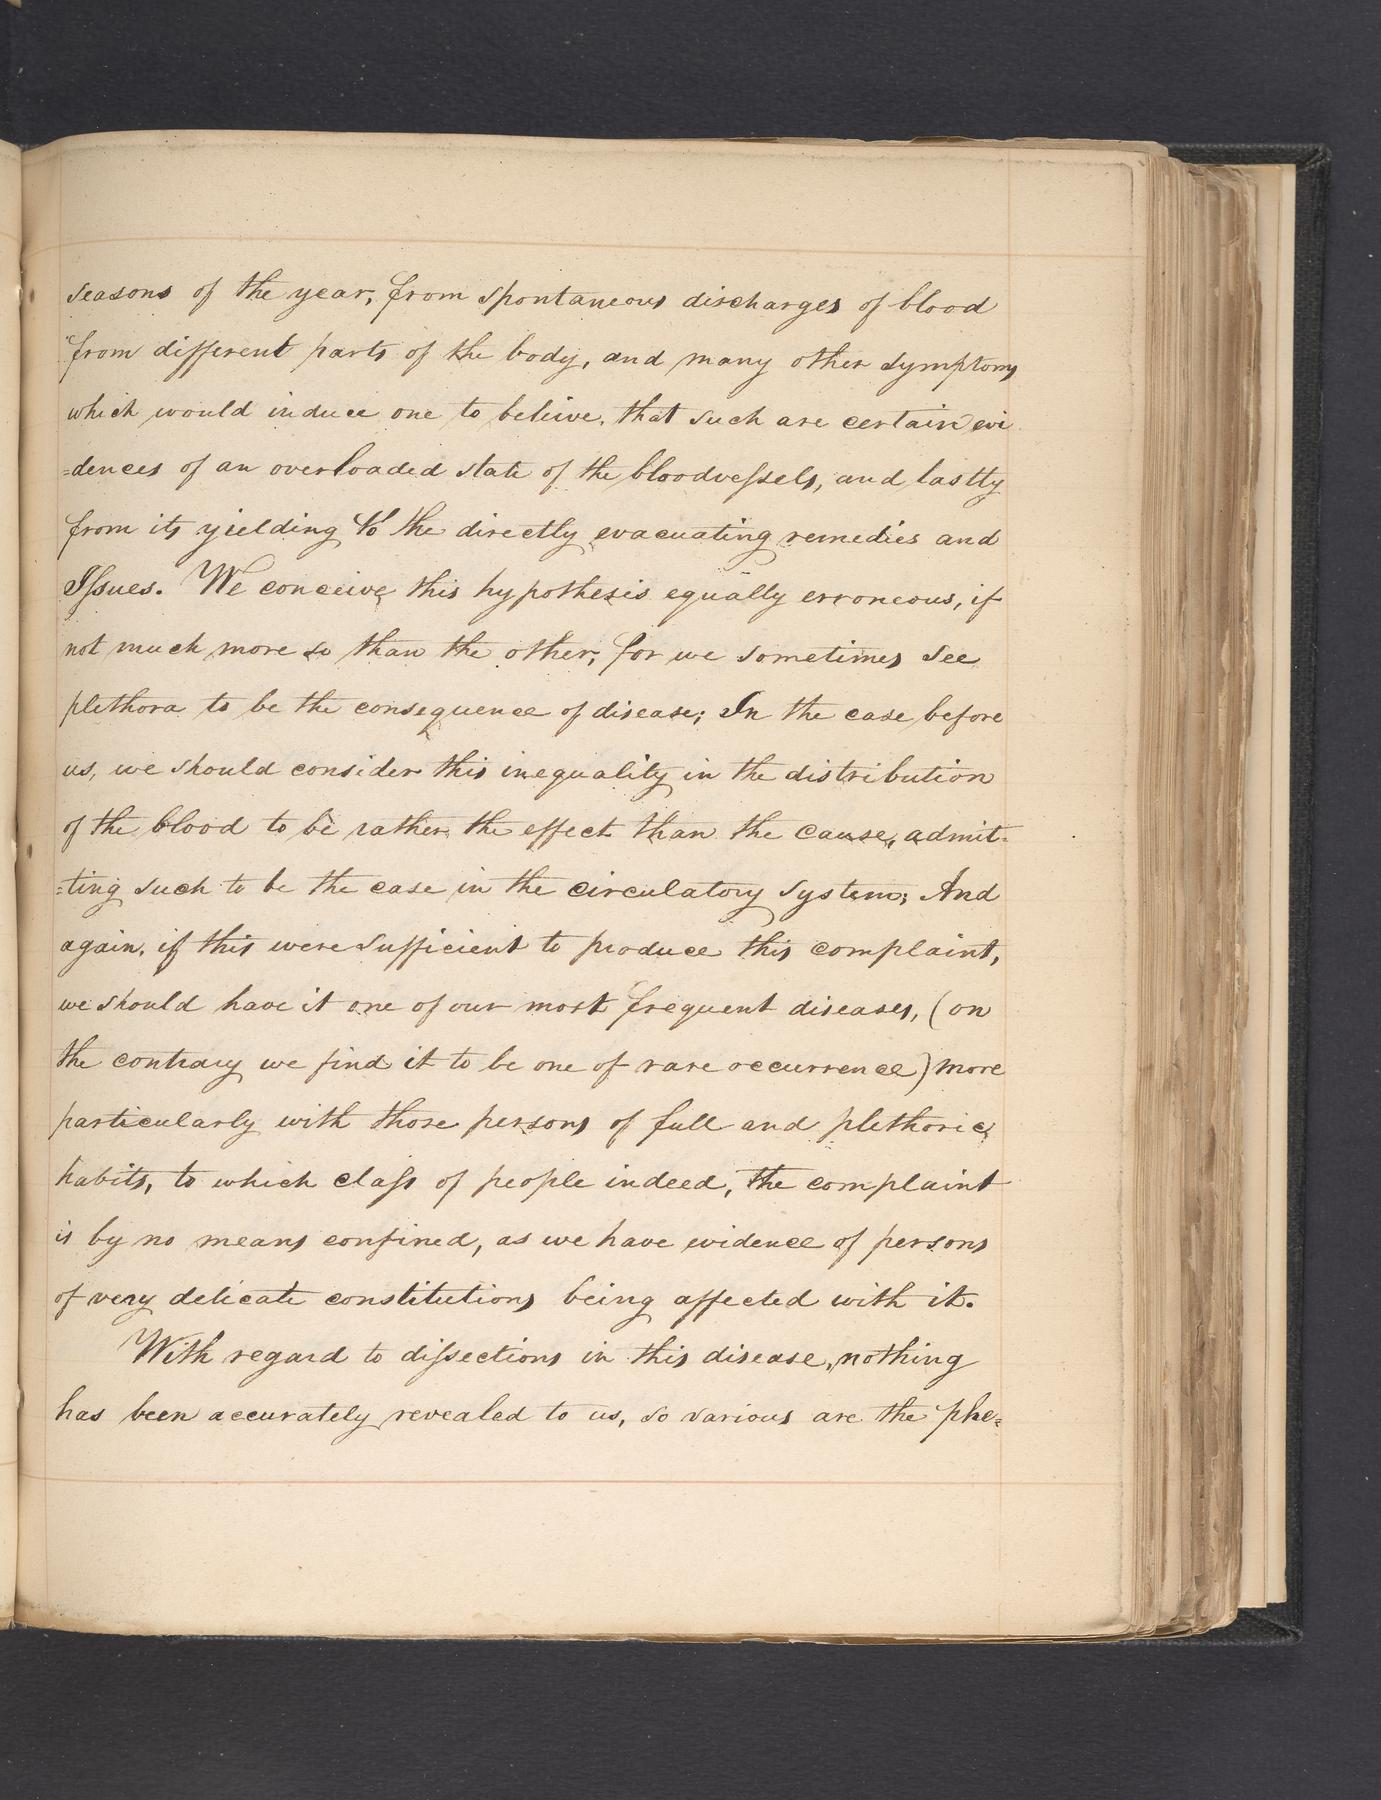 seasons of the year, from spontaneous discharges of blood
from different parts of the body, and many other symptoms
which would induce one to beleive, that such are certain evi
=dences of an overloaded state of the bloodveſsels, and lastly
from its yielding to the directly evacuating remedies and
Iſsues. We conceive this hypothesis equally erroneous, if
not much more so than the other, for we sometimes see
plethora to be the consequence of disease; In the case before
us, we should consider this inequality in the distribution
of the blood to be rather the effect than the cause, admit-
=ting such to be the case in the circulatory system; And
again, if this were sufficient to produce this complaint,
we should have it one of our most frequent diseases, (on
the contrary we find it to be one of rare occurrence) more
particularly with those persons of full and plethoric
habits, to which claſs of people indeed, the complaint
is by no means confined, as we have evidence of persons
of very delicate constitutions being affected with it.
With regard to diſsections in this disease, nothing
has been accurately revealed to us, so various are the phe=